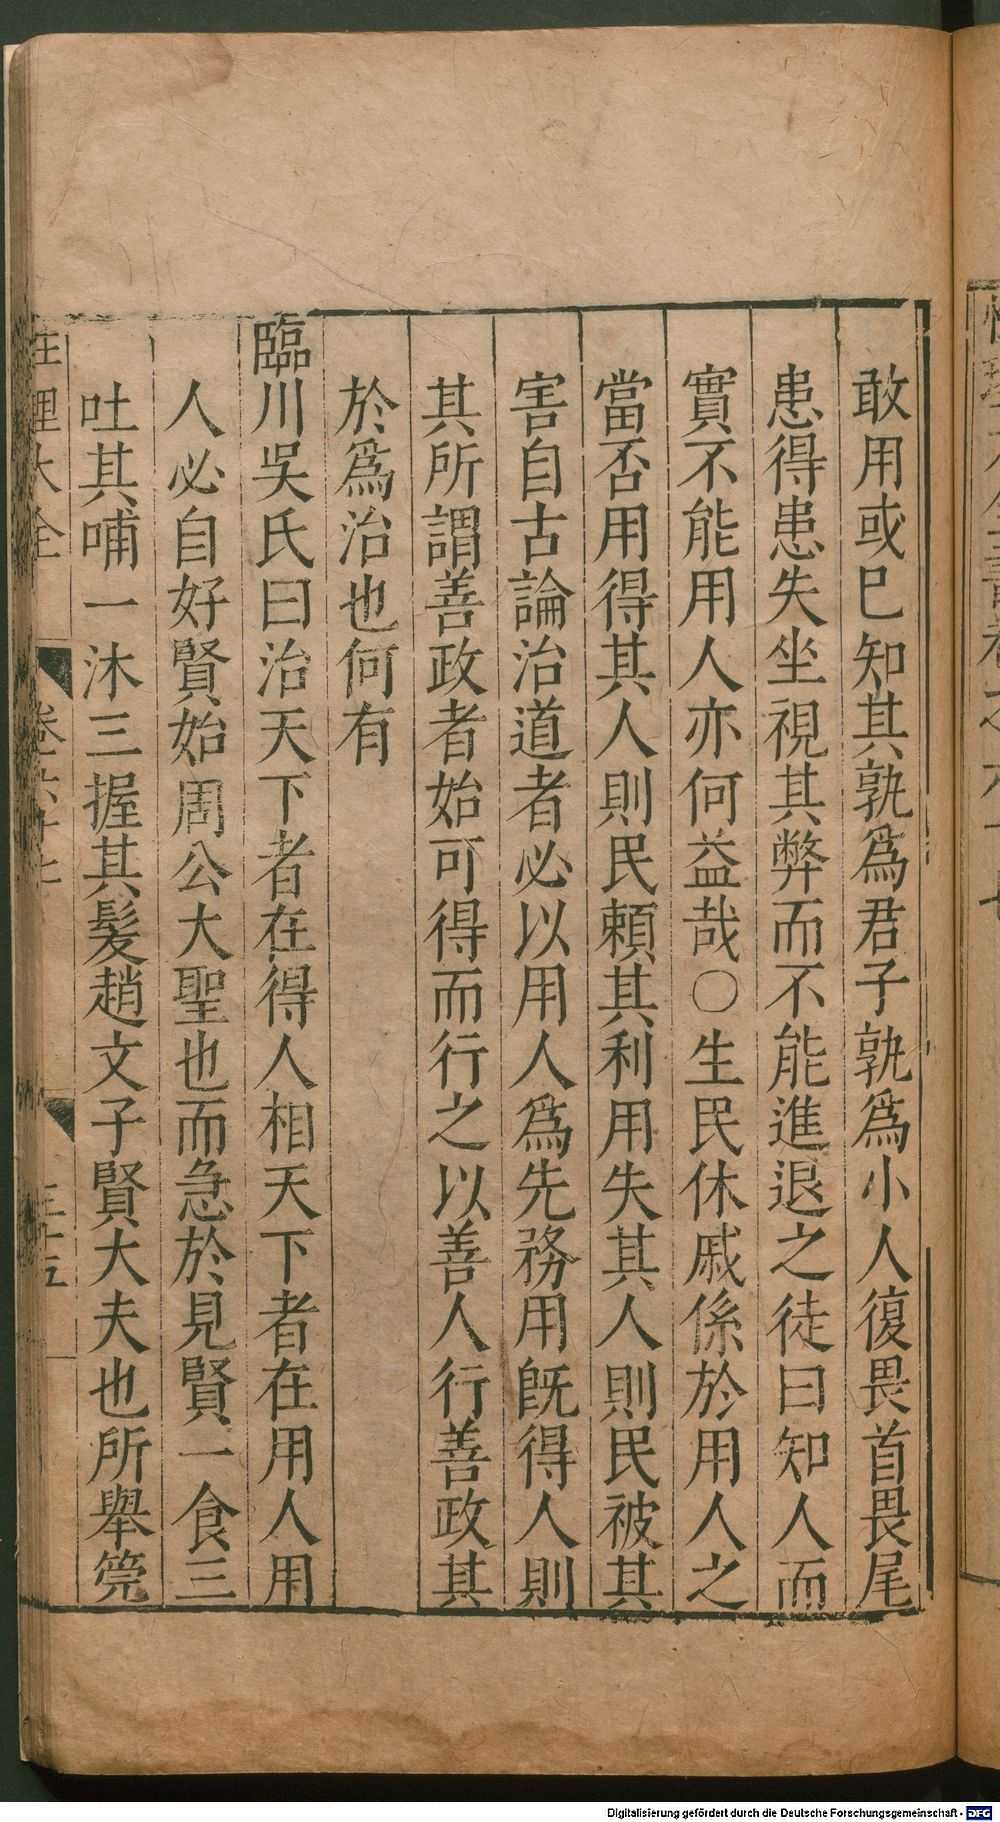 敢用或已知其孰爲君子孰爲小人復畏首畏尾
患得患失坐視其弊而不能進退之徒曰知人而
實不能用人亦何益哉○生民休戚係於用人之
當否用得其人則民賴其利用失其人則民被其
害自古論治道者必以用人爲先務用既得人則
其所謂善政者始可得而行之以善人行善政其
於爲治也何有
臨川吳氏曰治天下者在得人相天下者在用人用
人必自好賢始周公大聖也而急於見賢一食三
吐其哺一沐三握其髮趙文子賢大夫也所舉筦
性理大全 卷六十七 三十五
Digitalisierung gefördert durch die Deutsche Forschungsgemeinschaft - DFG